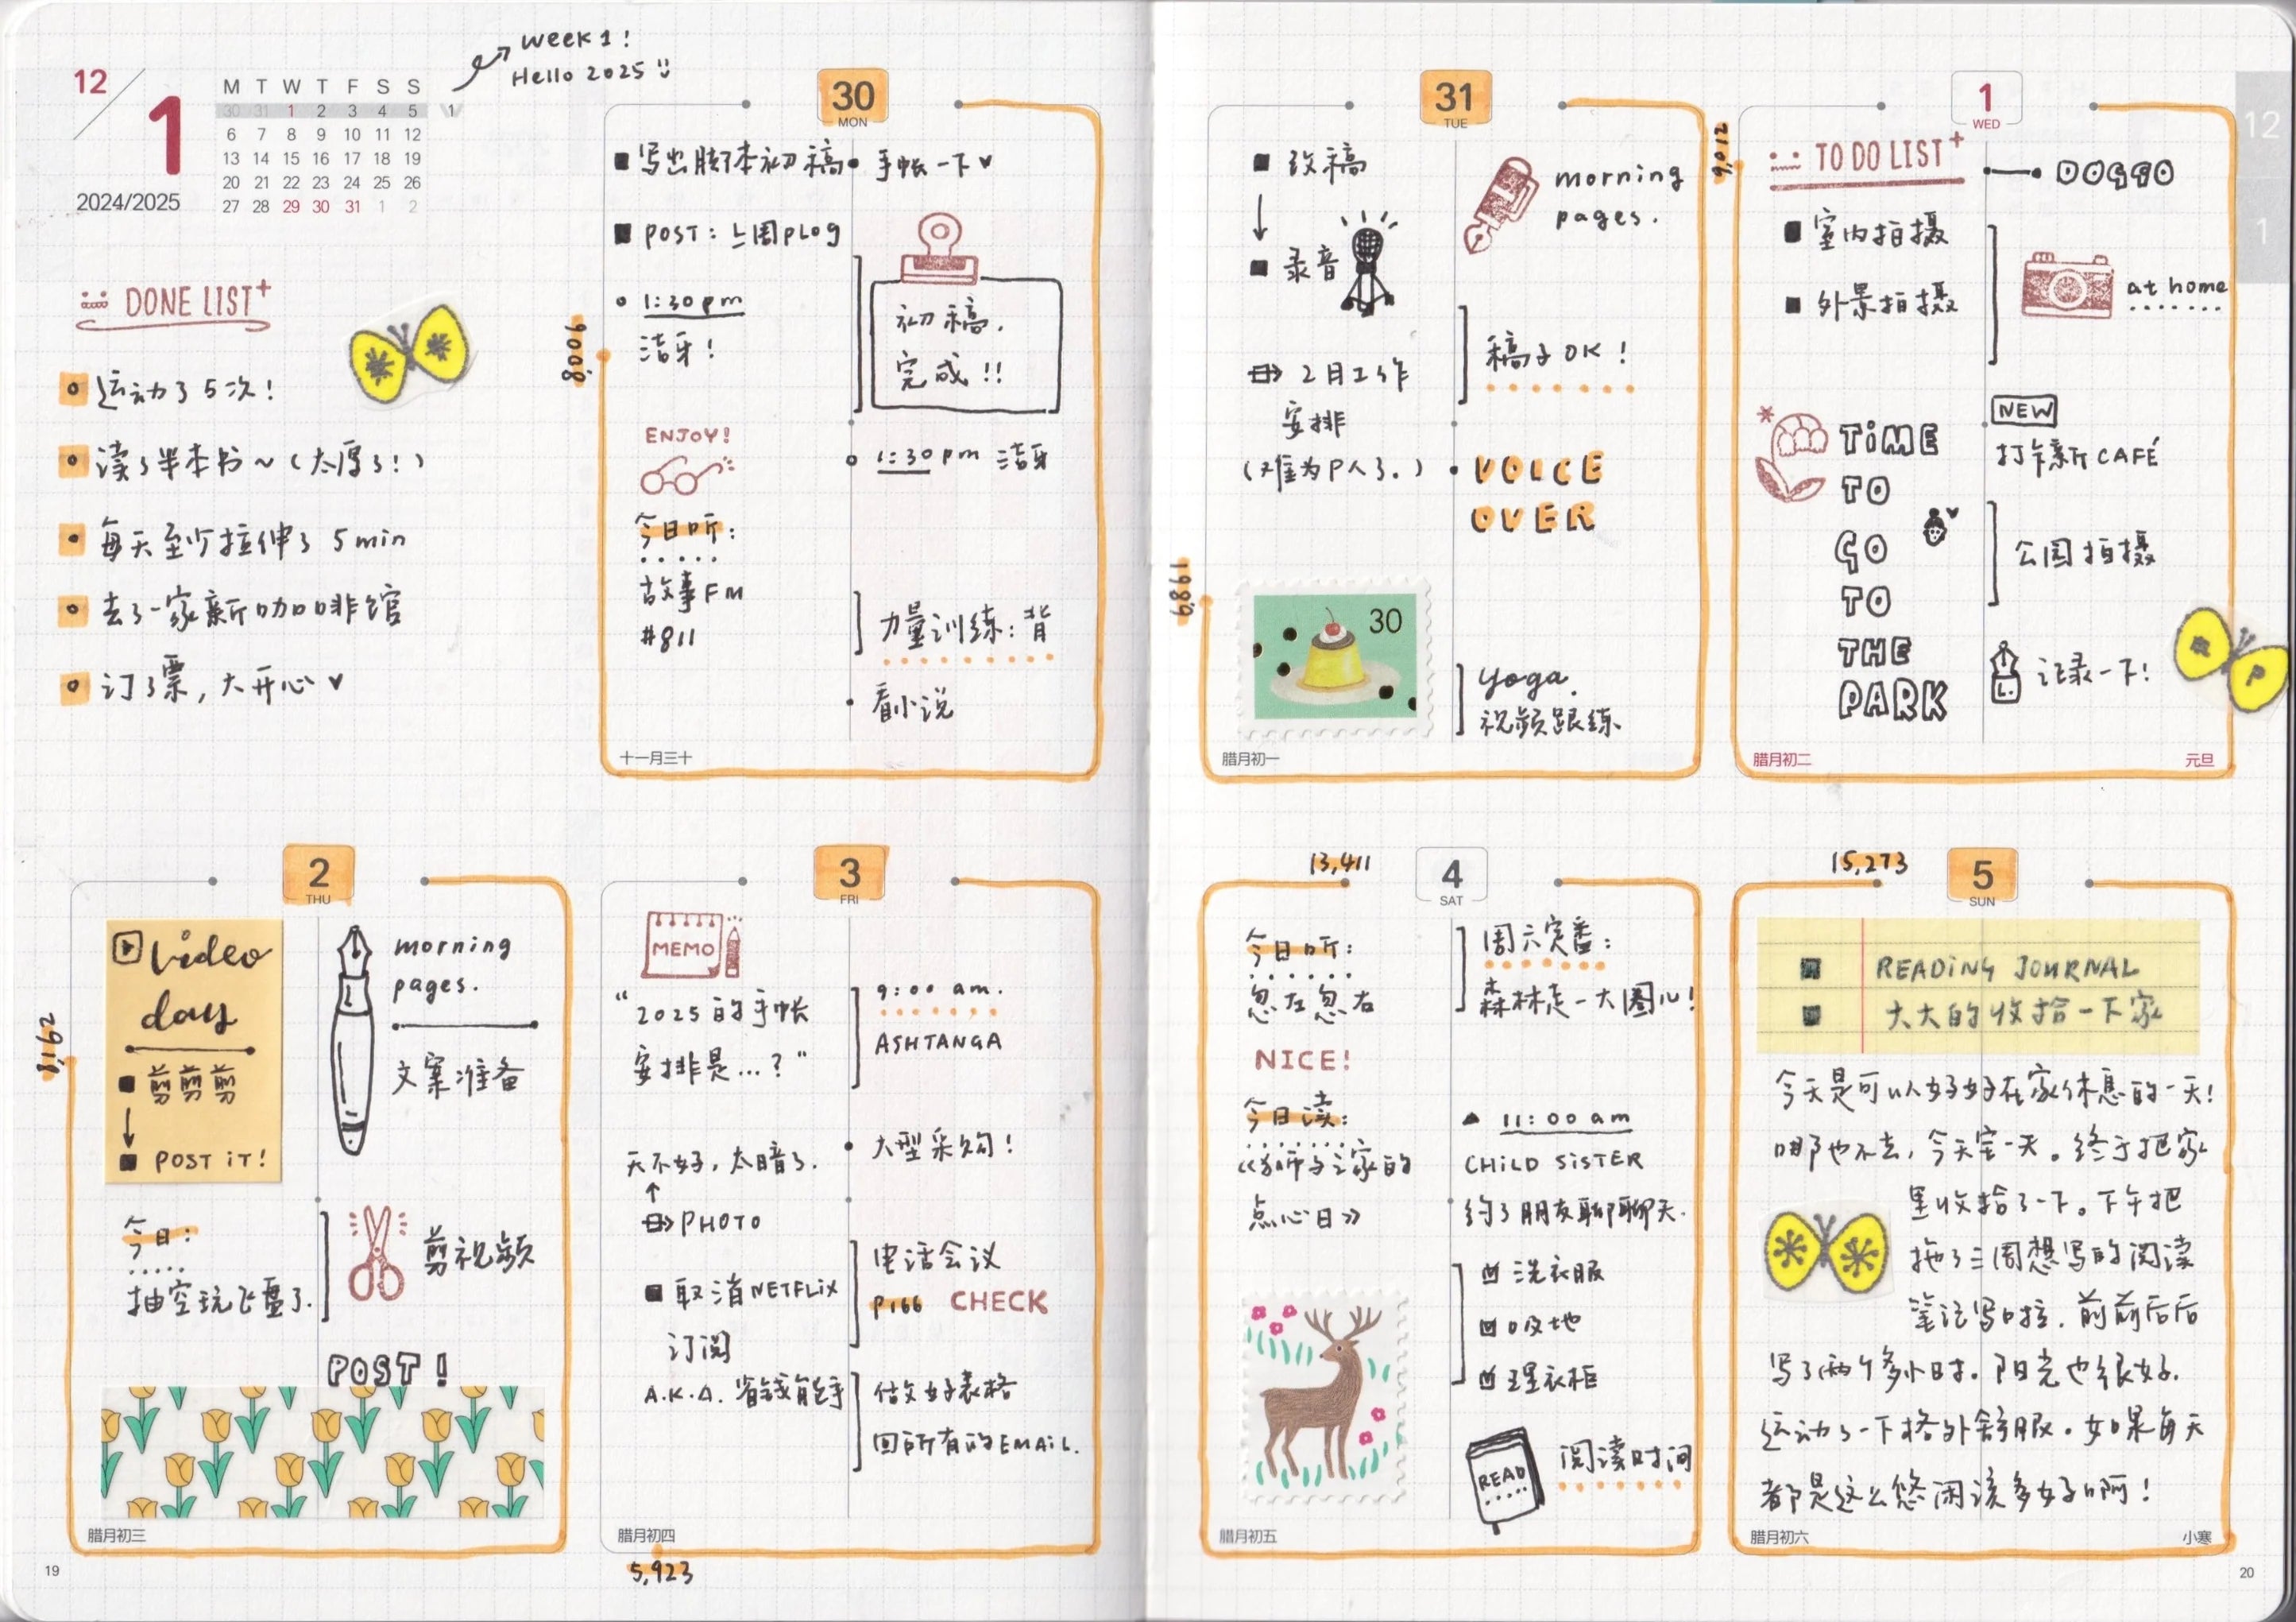 week 1!
Hello 2025
12
1
2024/2025
M T W T F S S
30 31 1 2 3 4 5 1
6 7 8 9 10 11 12
13 14 15 16 17 18 19
20 21 22 23 24 25 26
27 28 29 30 31 1 2
DONE LIST+
运动了5次！
读了半本书～（太厚了！）
每天至少拉伸了 5min
去了一家新咖啡馆
订了票，大开心♥
30
MON
8,006
写出脚本初稿
POST：上周PLOG
1:30pm
洁牙！
ENJOY!
今日听：
故事FM
#811
手帐一下♥
初稿.
完成!!
1:30pm 洁牙
力量训练：背
看小说
十一月三十
31
TUE
改稿
录音
2月工作
安排
（难为P人了.）
30
morning
pages.
稿子OK！
VOICE
OVER
yoga.
视频跟练.
腊月初一
1
WED
9,012
TO DO LIST+
室内拍摄
外景拍摄
TiME
TO
GO
TO
THE
PARK
DOGGO
at home
NEW
打卡新CAFÉ
公园拍摄
记录一下！
腊月初二
元旦
12
1
2
THU
8,162
video
day
剪剪剪
POST iT!
今日：
抽空玩飞盘了.
morning
pages.
文案准备
剪视频
POST!
腊月初三
3
FRI
MEMO
“2025的手帐
安排是...？”
天不好，太暗了.
PHOTO
取消NETFLiX
订阅
A.K.A. 省钱能手
9:00 am.
ASHTANGA
大型采购！
电话会议
P166 CHECK
做好表格
回所有的EMAiL.
腊月初四
5,923
13,411
4
SAT
今日听：
忽左忽右
NICE!
今日读：
点心日》
周六完番：
森林走一大圈儿！
11:00 am
CHiLD SiSTER
约了朋友聊聊天.
洗衣服
吸地
理衣柜
READ
阅读时间
腊月初五
15,273
5
SUN
READiNG JOURNAL
大大的收拾一下家
今天是可以好好在家休息的一天！
哪也不去，今天宅一天。终于把家
里收拾了一下。下午把
拖了三周想写的阅读
笔记写啦. 前前后后
写了两个多小时. 阳光也很好.
运动了一下格外舒服. 如果每天
都是这么悠闲该多好啊！
腊月初六
小寒
19
20